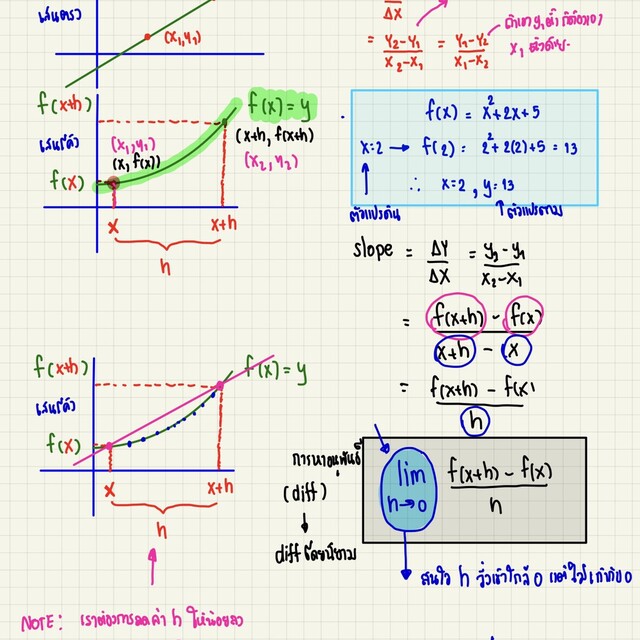 เส้นตรง
(x₁,y₁)
ΔX
= y₂-y₁/x₂-x₁ = y₁-y₂/x₁-x₂
x₁
f(x+h)
f(x)=y
เส้นโค้ง
(x₁,y₁)
(x, f(x))
(x+h, f(x+h))
(x₂,y₂)
f(x)
x
x+h
h
f(x) = x²+2x+5
x=2 → f(2) = 2²+2(2)+5 = 13
∴ x=2 , y=13
ตัวแปรต้น
ตัวแปรตาม
slope = ΔY/ΔX = y₂-y₁/x₂-x₁
= f(x+h) - f(x)/x+h - x
= f(x+h) - f(x)/h
f(x+h)
f(x)=y
เส้นโค้ง
f(x)
x
x+h
h
การหาอนุพันธ์
(diff)
diff โดยนิยาม
lim h→0 f(x+h) - f(x)/h
สนใจ h วิ่งเข้าใกล้ 0 แต่ไม่เท่ากับ 0
NOTE: เราต้องการลดค่า h ให้น้อยลง